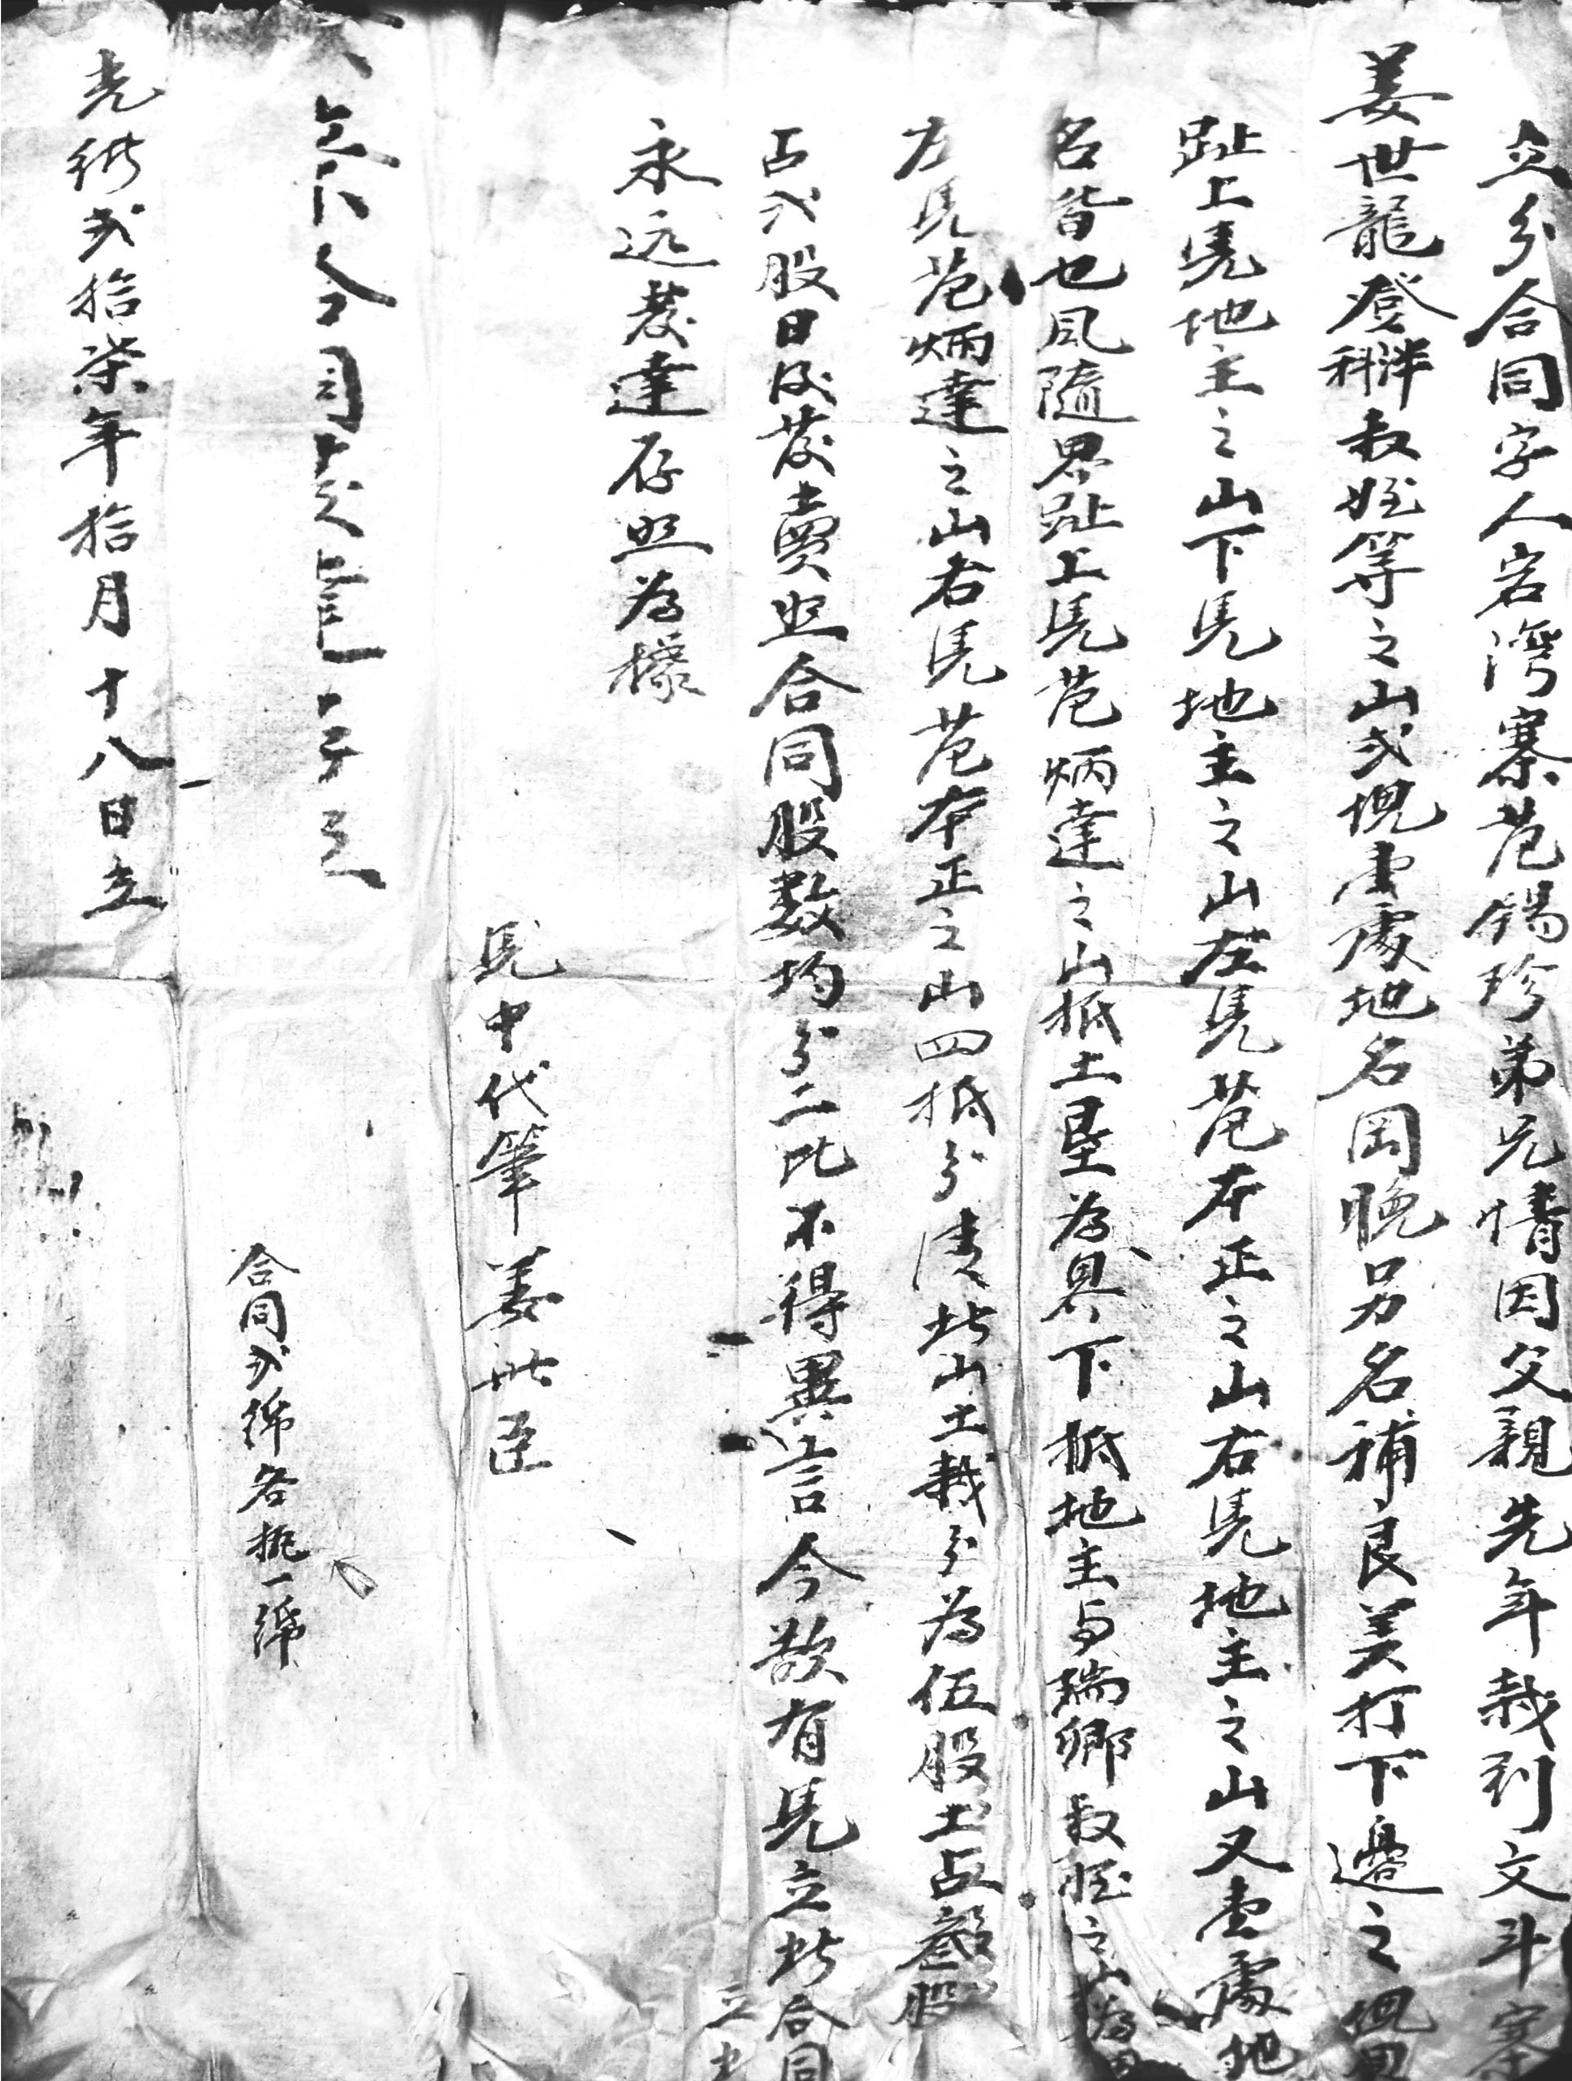 立分合同字人岩湾寨范錫珍弟兄情因父親先年栽到文斗寨
姜世龍登泮科叔姪等之山弍塊壹處地名岡晚另名補良美打下邊之塊界
趾上凴地主之山下凴地主之山左凴范本正之山右凴地主之山又壹處地
名皆也风隨界趾上凴范炳達之山抵土垦為界下抵地主与瑞卿叔姪之山為界
左凴范炳達之山右凴范本正之山四抵分清此山土栽分為伍股土占叁股
占弍股日後發賣照合同股数均分二比不得異言今欲有凴立此合同
永远發達存照為據
凴中代筆姜世臣
合同弍紙各执一紙
光緒弍拾柒年拾月十八日立